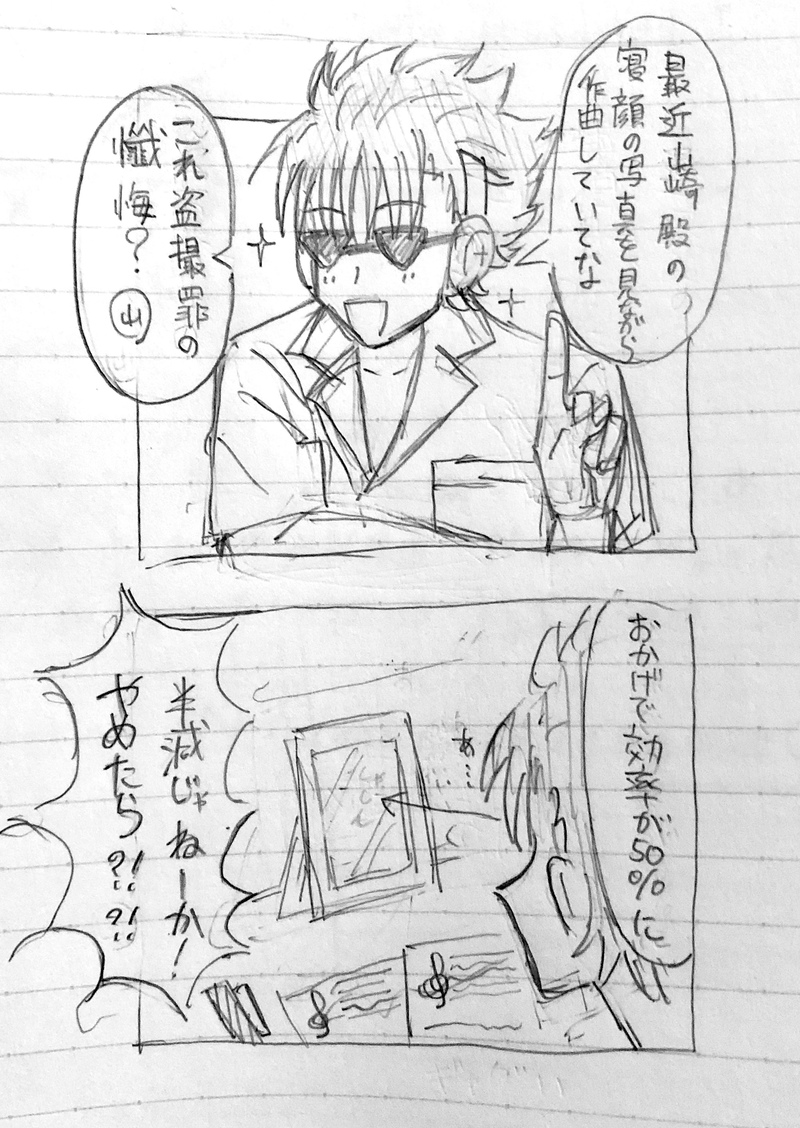 最近山崎殿の
寝顔の写真を見ながら
作曲していてな
これ盗撮罪の
懺悔？ 山
おかげで効率が50%に
あ…
しゃしん
半減じゃねーか！
やめたら?!?!